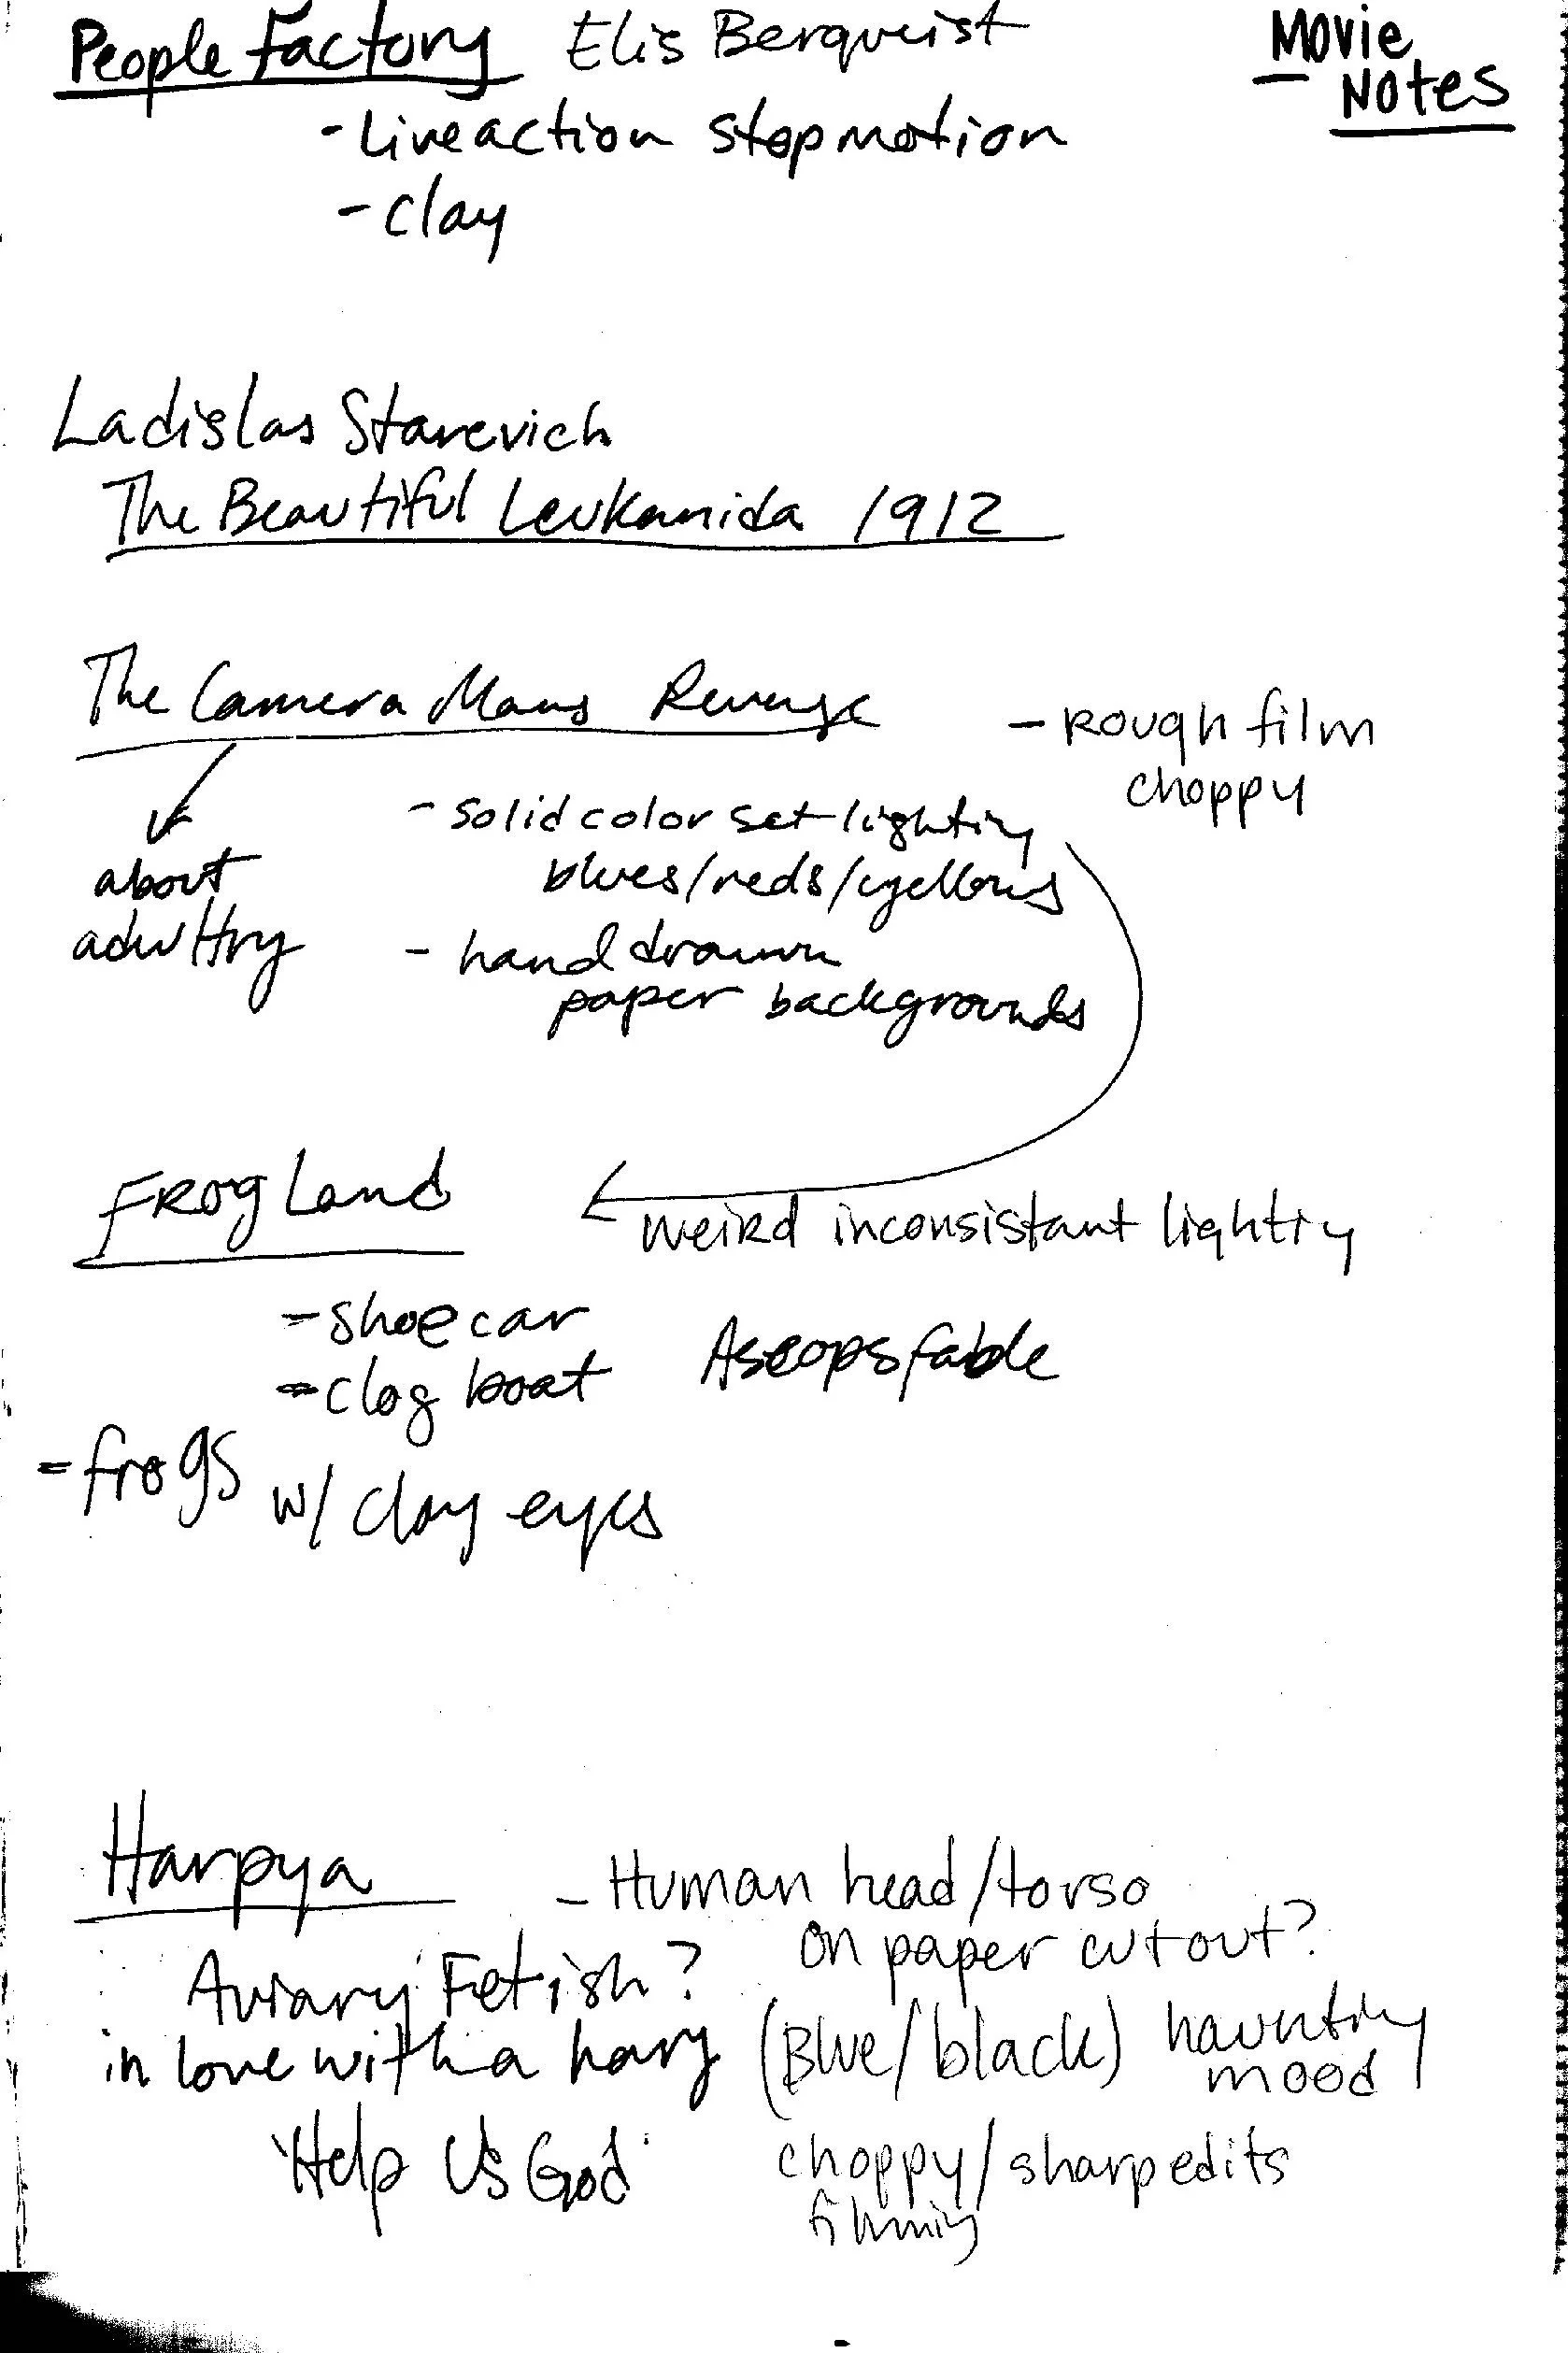 People Factory Elis Berqueist
Movie
Notes
- Live action stop motion
- clay
Ladislas Starevich
The Beautiful Leukanida 1912
The Camera Mans Revenge
- Rough film
choppy
about
adultry
- solid color set lighting
blues/reds/yellows
- hand drawn
paper backgrounds
Frog Land
weird inconsistant lighting
- shoe car
- clog boat
Aseops fable
- frogs w/ clay eyes
Harpya
- Human head/torso
on paper cutout?
Aviary Fetish?
in love with a harpy
(Blue/black) haunting
mood
"Help Us God"
choppy/sharp edits
filming